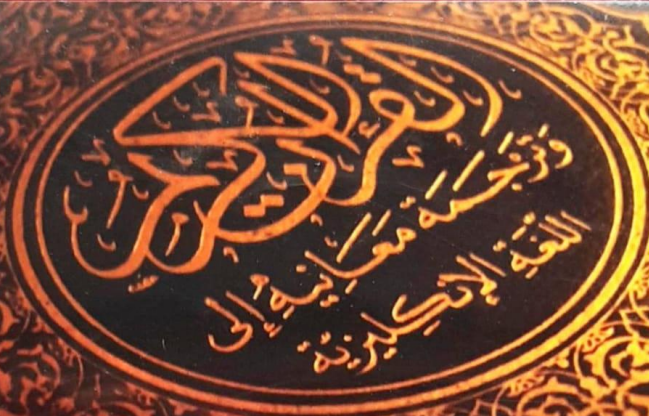 القرآن الكريم
وَتَرْجَمَة مَعَانِيهِ إِلى
اللغَةِ الإنكِليزيَّة